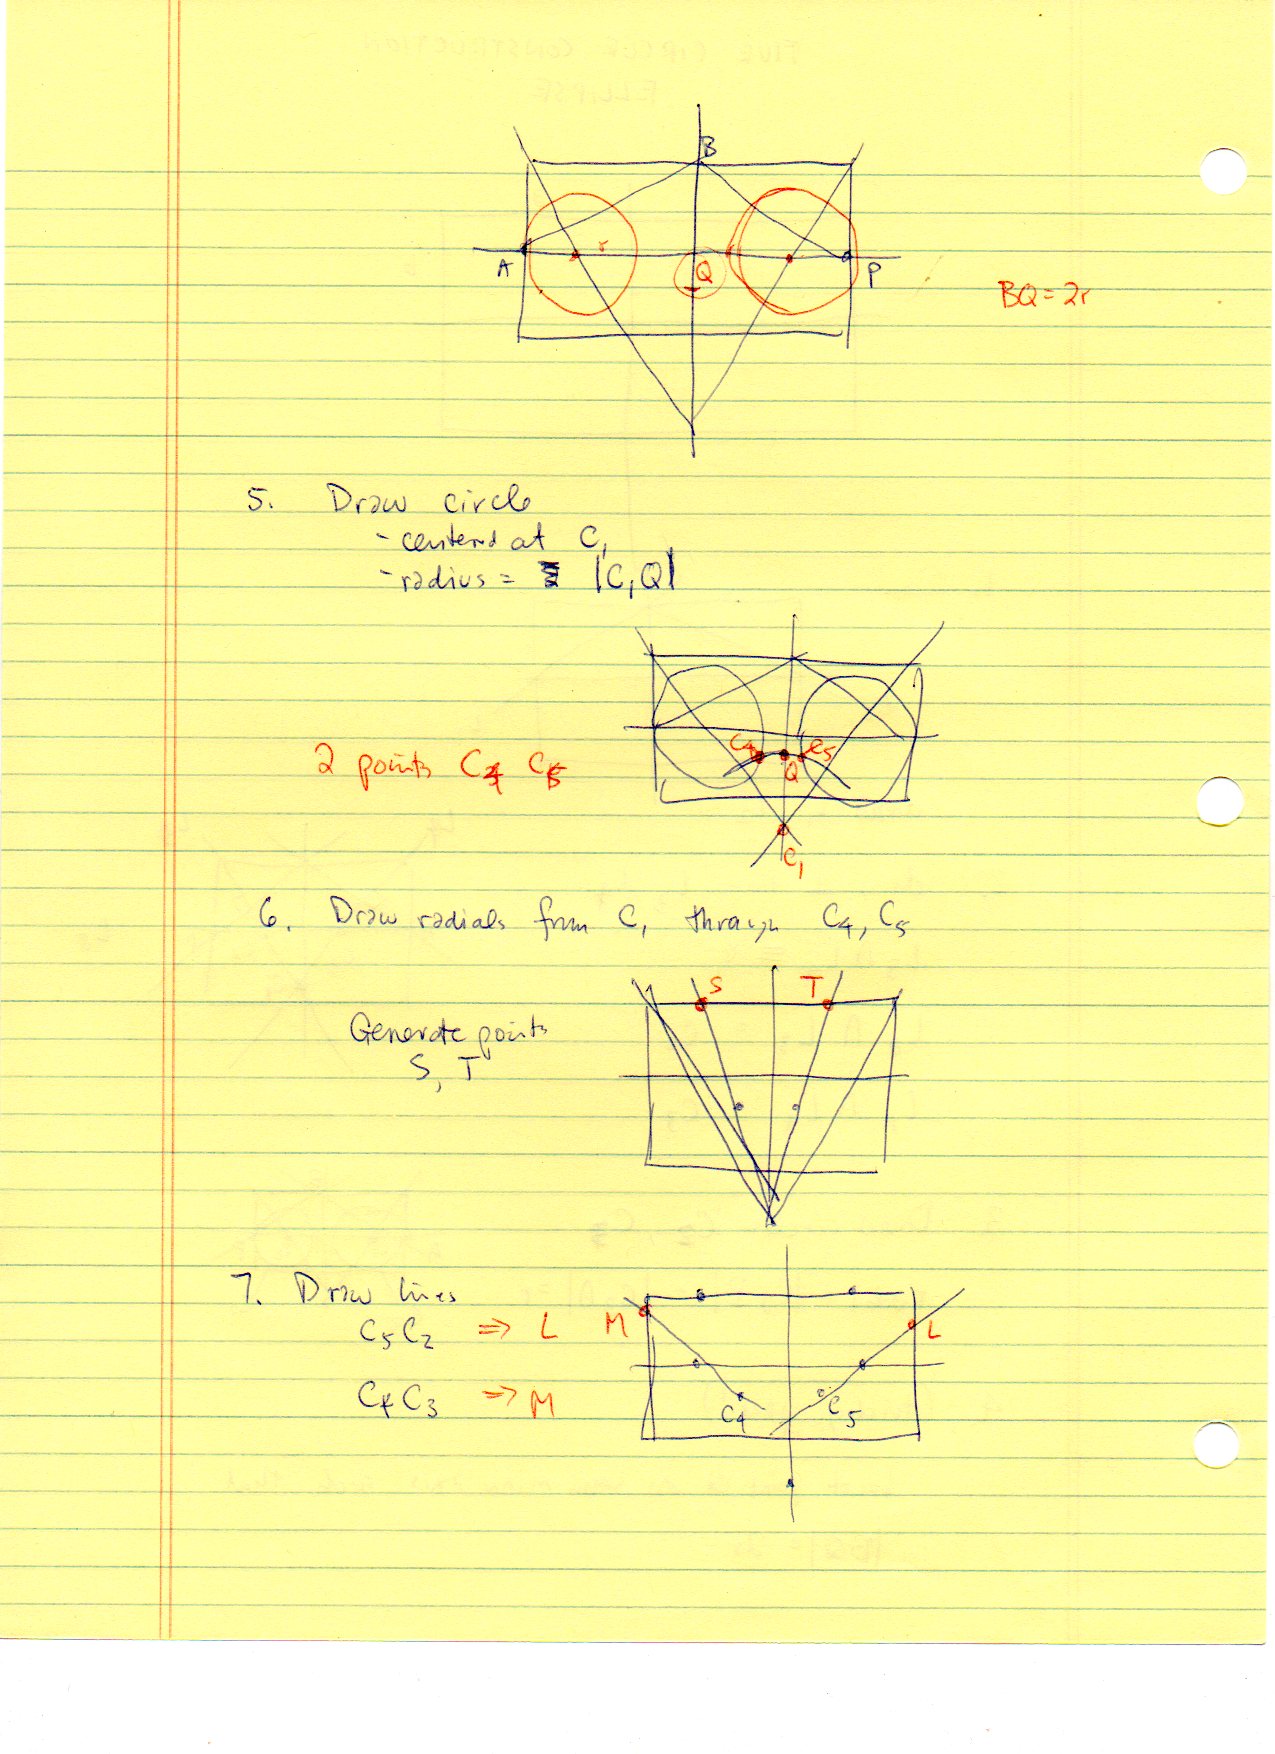 B
A r Q P
BQ = 2r
5. Draw circle
- centered at C1
- radius = |C1Q|
2 points C4 C5
C4 Q C5
C1
6. Draw radials from C1 through C4, C5
S T
Generate points
S, T
7. Draw lines
C5C2 ⇒ L
M L
C4C3 ⇒ M
C4 C5